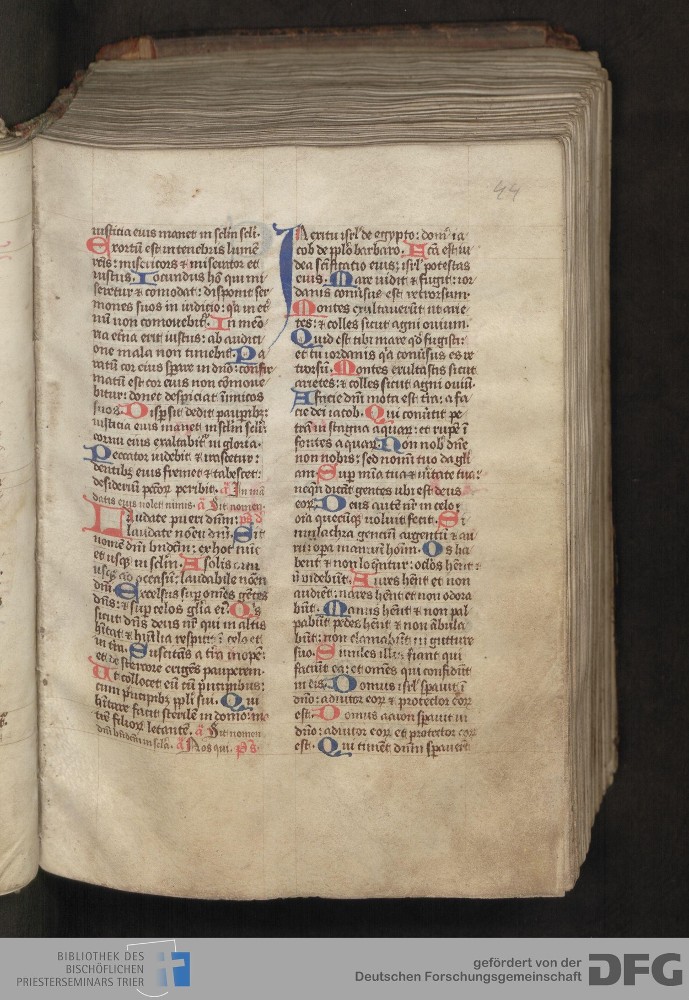 44
iusticia eius manet in sclm scli.
Exortu est in tenebris lume
rcis: miscricors & miserator et
iustus. Iocundus ho qui mi
seretur & comodat: disponit ser
mones suos in iudicio: qa in et
nu non comouebit. In meo
ria etna erit iustus: ab auditi
one mala non timebit. Pa
ratu cor eius spare in dno: confir
matu est cor eius non comoue
bitur: donec despiciat inimicos
suos. Dispsit dedit paupibz:
iusticia eius manet in sclm scli:
cornu eius exaltabit in gloria.
Peccator uidebit & irascetur:
dentibz suis fremet & tabescet:
desideriu pccor peribit. a In ma
datis eius uolet nimis. a Sit nomen.
Laudate pueri dnm: ps d
laudate nomen dni. Sit
nome dni bndcm: ex hoc nuc
et usqz in sclm. A solis ortu
usqz ad occasu: laudabile nomen
dni. Excelsus sup omes getes
dns: & sup celos glia ei. Qs
sicut dns deus nr qui in altis
hitat & humilia respicit i celo et
in tra. Suscitas a tra inope:
et de stercore eriges pauperem.
Ut collocet eu cu principibus:
cum principibz ppli sui. Qui
hitare facit sterile in domo: ma
tre filior letante. a Sit nomen
dni bndcm in scla. a Nos qui. ps
In exitu isrl de egypto: dom ia
cob de pplo barbaro. Fca est iu
dea scificatio eius: isrl potestas
eius. Mare uidit & fugit: ior
danis conuersus est retrorsum.
Montes exultauerut ut arie
tes: & colles sicut agni ouium.
Quid est tibi mare qd fugisti:
et tu iordanis qa conuersus es re
trorsu. Montes exultastis sicut
arietes: & colles sicut agni ouiu.
A facie dni mota est tra: a fa
cie dei iacob. Qui conuertit pe
tra in stagna aquar: et rupe i
fontes aquar. Non nob dne
non nobis: sed nomi tuo da gli
am. Sup mia tua & uitate tua:
neqn dicat gentes ubi est deus
eor. Deus aute nr in celo:
oia quecuqz uoluit fecit. Si
mulachra genciu argentu & au
ru: opa manuu homi. Os ha
bent & non loquntur: oclos hent:
& n uidebut. Aures hent et non
audiet: nares hent et non odora
but. Manus hent & non pal
pabut pedes hent & non abula
but: non clamabut in gutture
suo. Similes illis fiant qui
faciut ea: et omes qui confidut
in eis. Domus isrl spauit i
dno: adiutor eor & protector eor
est. Domus aaron spauit in
dno: adiutor eor et protector eor
est. Qui timet dnm spauert
BIBLIOTHEK DES
BISCHÖFLICHEN
PRIESTERSEMINARS TRIER
gefördert von der
Deutschen Forschungsgemeinschaft
DFG